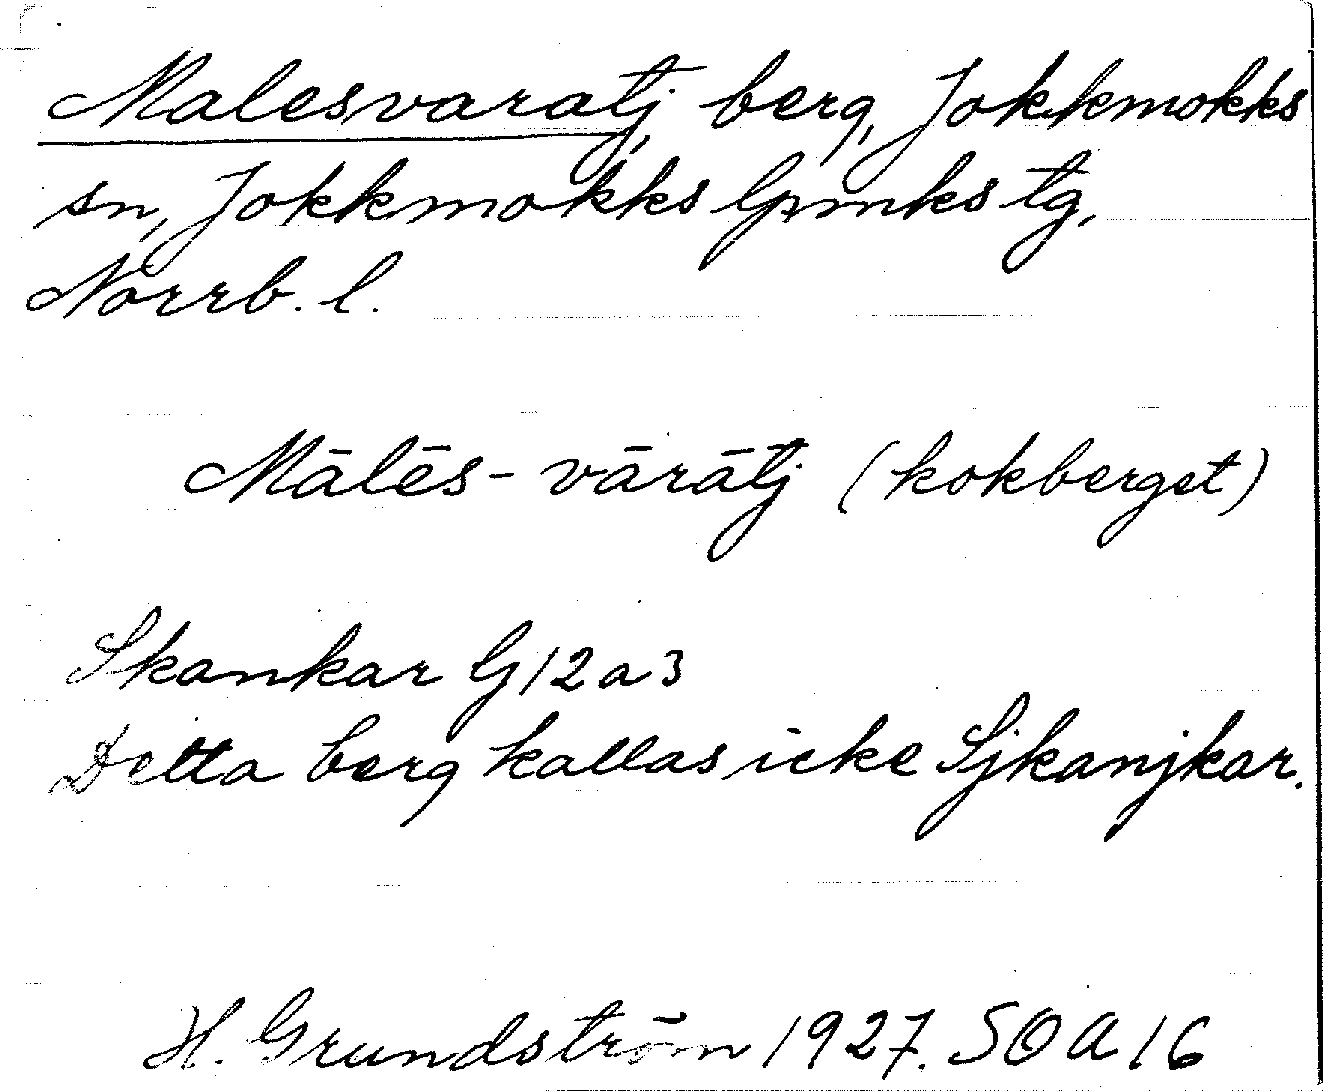 Malesvaratj, berg, Jokkmokks
sn, Jokkmokks lpmks tg,
Norrb. l.
Mālēs-vārātj (kokberget)
Skankar G12a3
Detta berg kallas icke Sjkanjkar.
H. Grundström 1927. SOA16